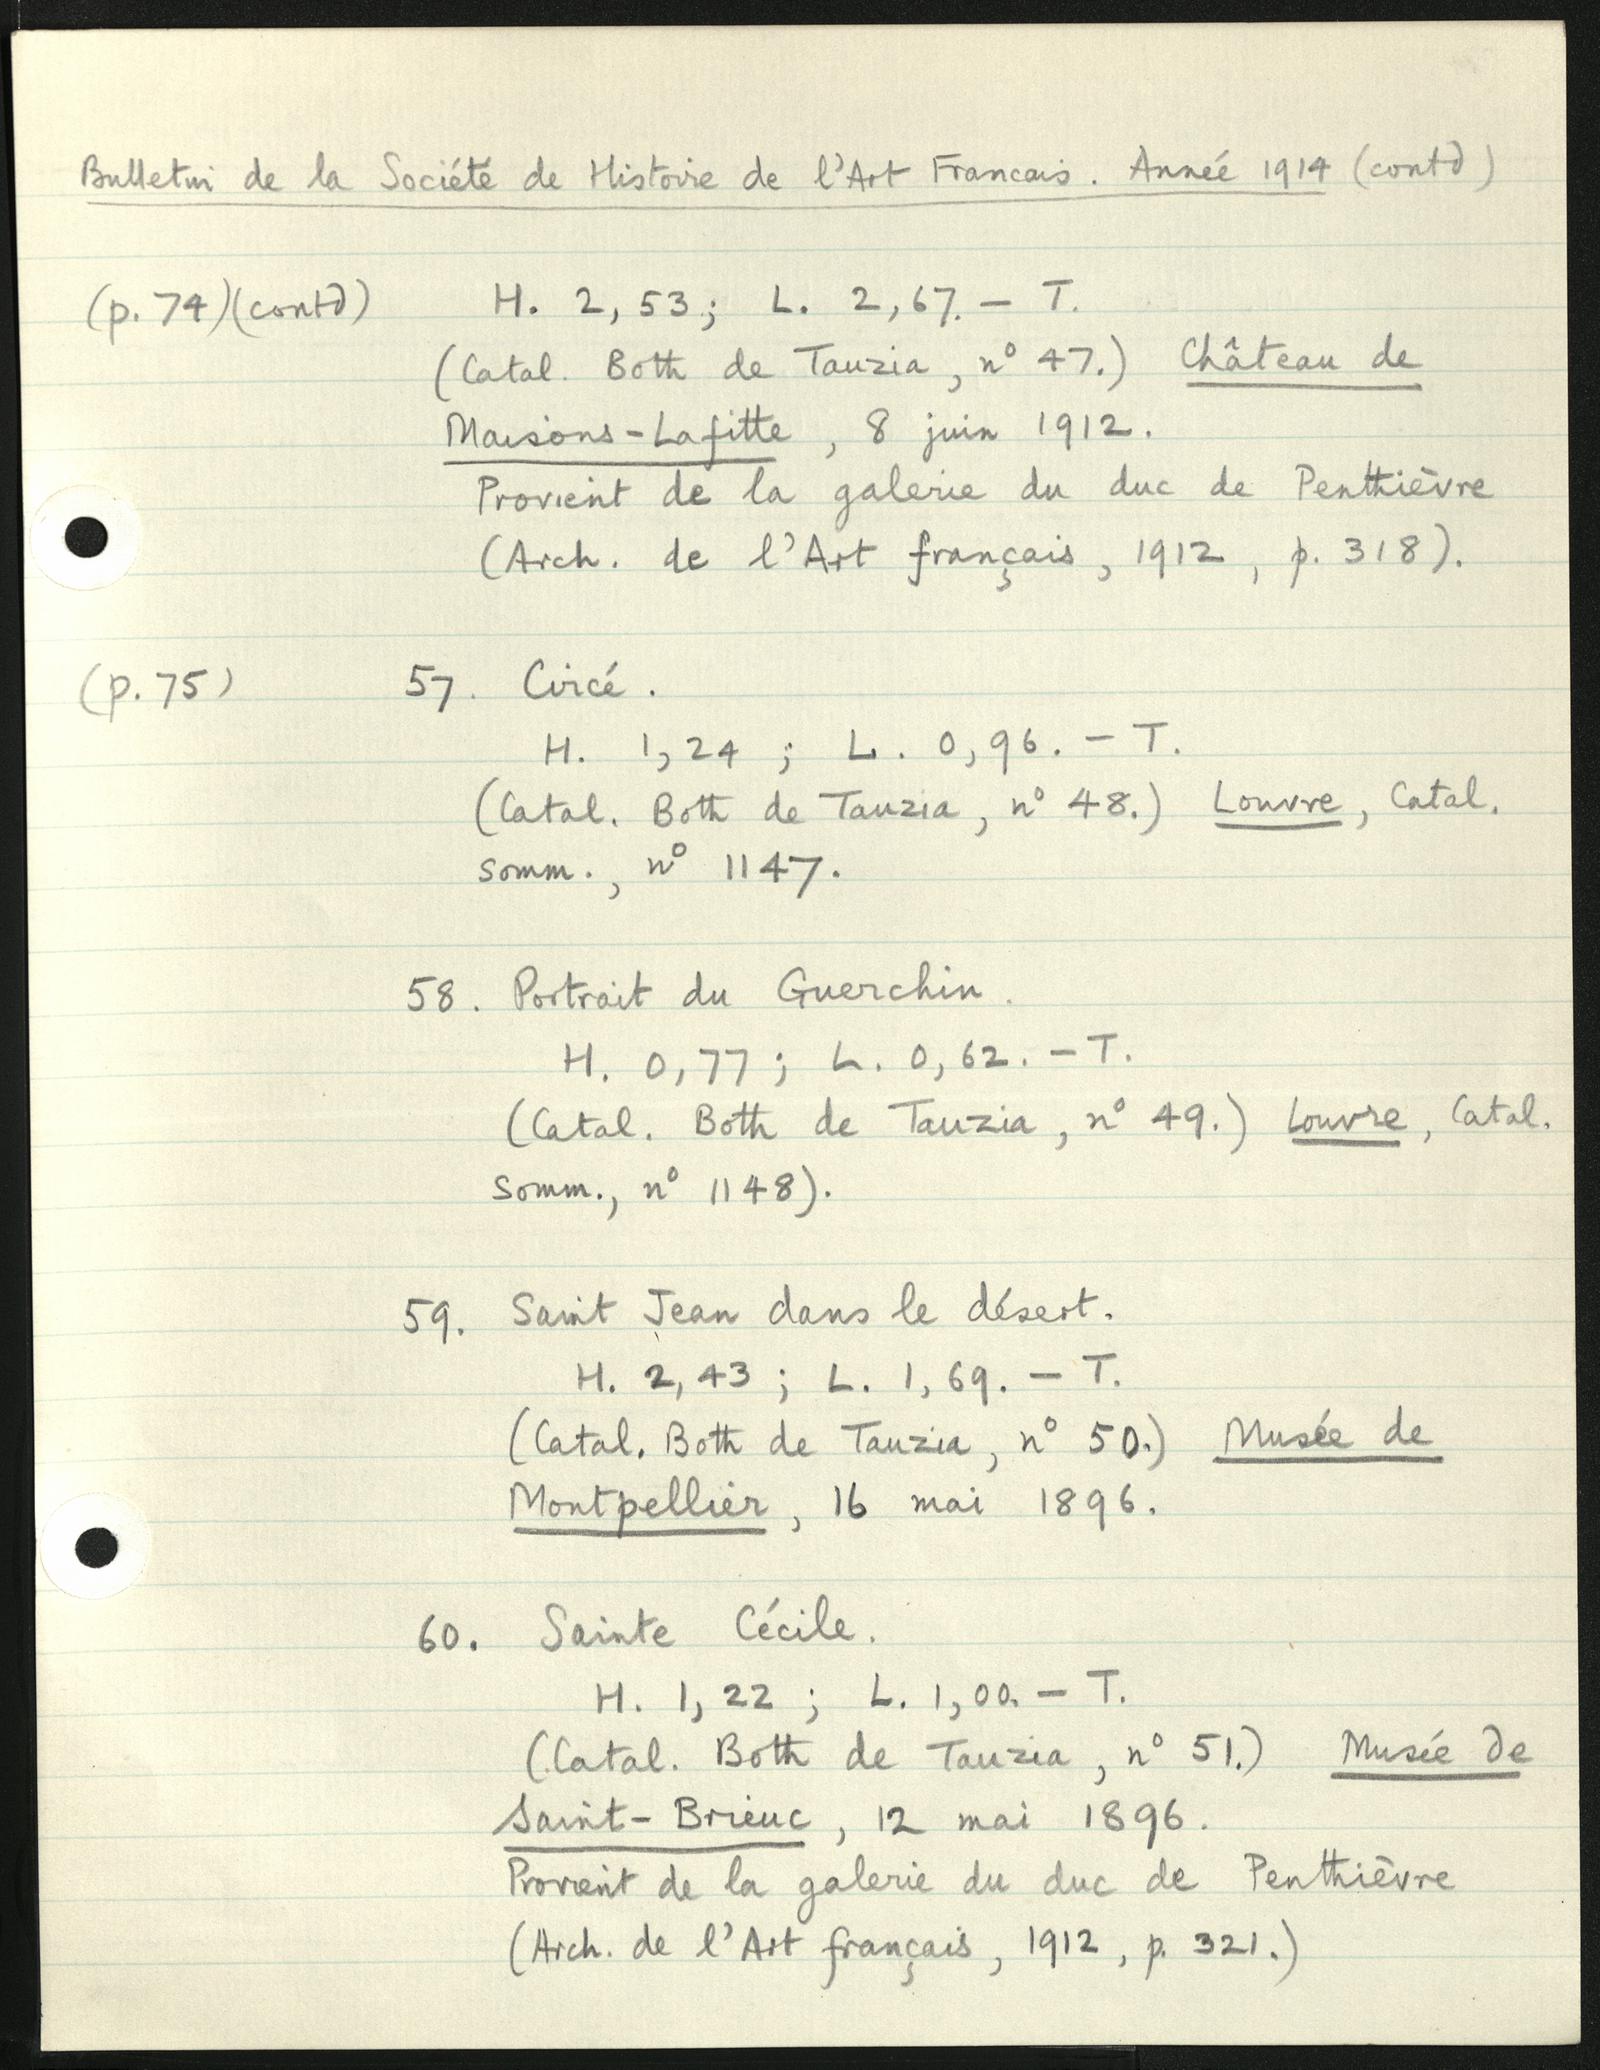 Bulletin de la Société de Histoire de l'Art Francais. Année 1914 (contd)
(p. 74)(contd) H. 2,53; L. 2,67. – T.
(Catal. Both de Tauzia, nº 47.) Château de
Maisons-Lafitte, 8 juin 1912.
Provient de la galerie du duc de Penthièvre
(Arch. de l'Art français, 1912, p. 318).
(p. 75) 57. Circé.
H. 1,24; L. 0,96. – T.
(Catal. Both de Tauzia, nº 48.) Louvre, Catal.
somm., nº 1147.
58. Portrait du Guerchin.
H. 0,77; L. 0,62. – T.
(Catal. Both de Tauzia, nº 49.) Louvre, Catal.
somm., nº 1148).
59. Saint Jean dans le désert.
H. 2,43; L. 1,69. – T.
(Catal. Both de Tauzia, nº 50.) Musée de
Montpellier, 16 mai 1896.
60. Sainte Cécile.
H. 1,22; L. 1,00. – T.
(Catal. Both de Tauzia, nº 51.) Musée de
Saint-Brieuc, 12 mai 1896.
Provient de la galerie du duc de Penthièvre
(Arch. de l'Art français, 1912, p. 321.)